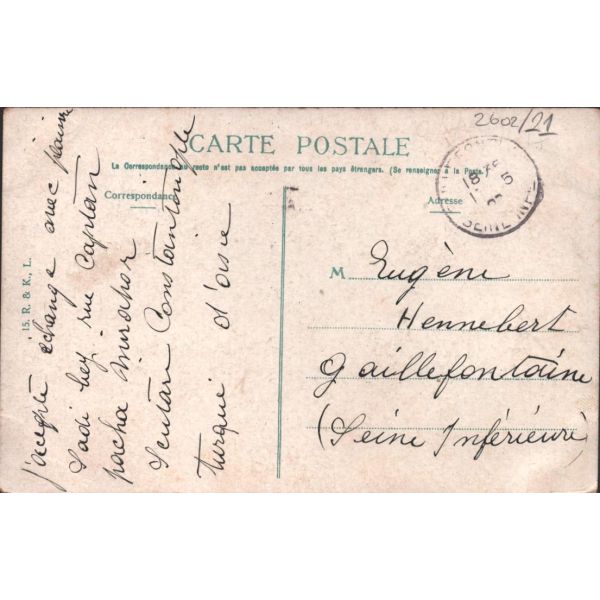 2602/21
CARTE POSTALE
La Correspondance au recto n'est pas acceptée par tous les pays étrangers. (Se renseigner à la Poste.)
Correspondance
Adresse
SEINE INF
15. R. & K., L.
j'accepte échange avec plaisir
Sadi bey rue Captan
pacha Mirahor
Scutari Constantinople
Turquie d'asie
M Eugène
Hennebert
Gaillefontaine
(Seine Inférieure)